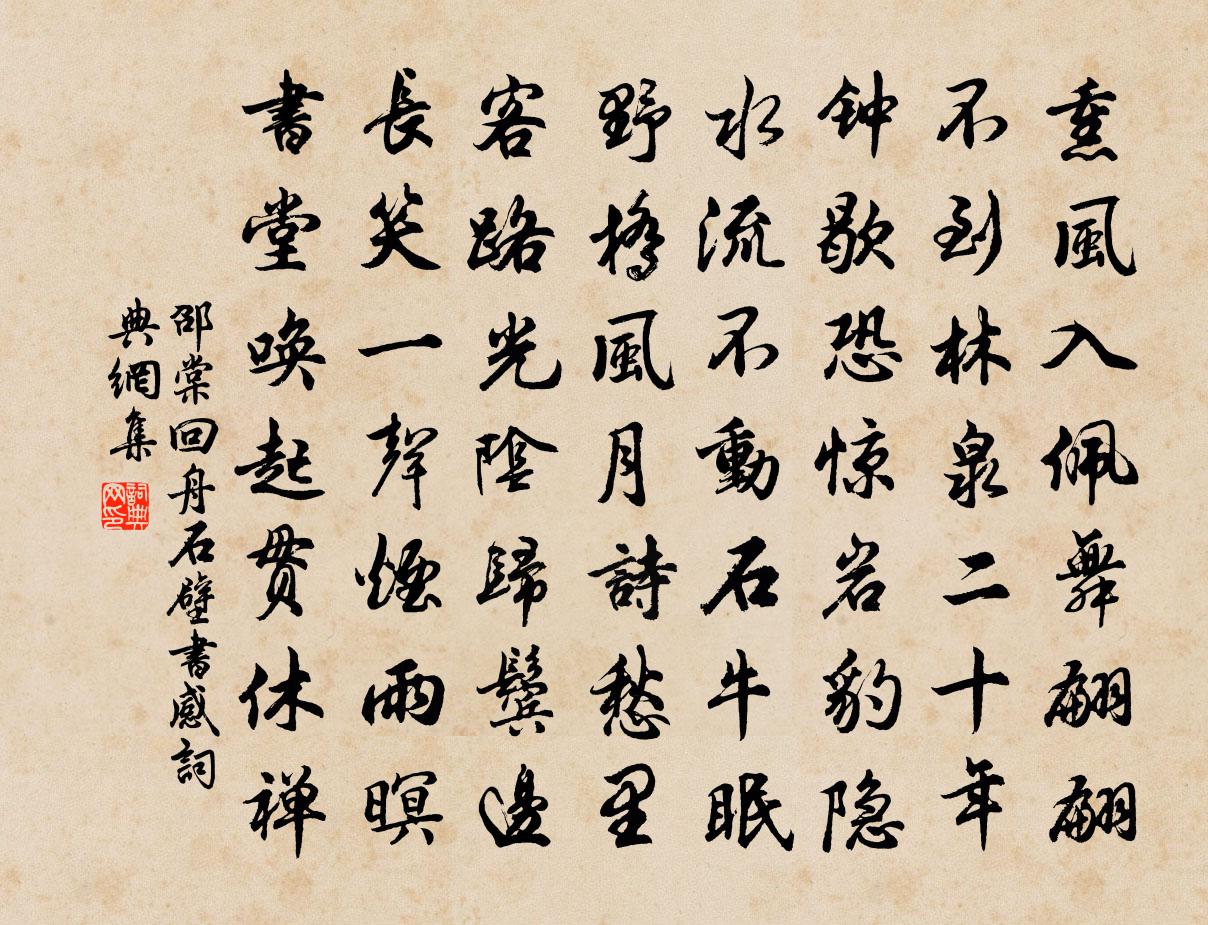 熏風入佩舞翩翩
不到林泉二十年
钟歇恐惊岩豹隐
水流不動石牛眠
野橋風月詩愁里
客路光陰歸鬓邊
長笑一聲煙雨暝
書堂唤起贯休禅
邵棠回舟石壁書感詞
典網集
詞典
网印